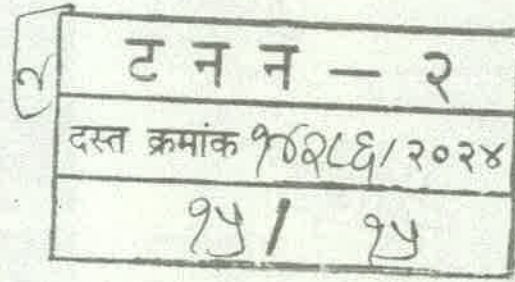 ट न न — २
दस्त क्रमांक १४२८६/२०२४
१५ / १५